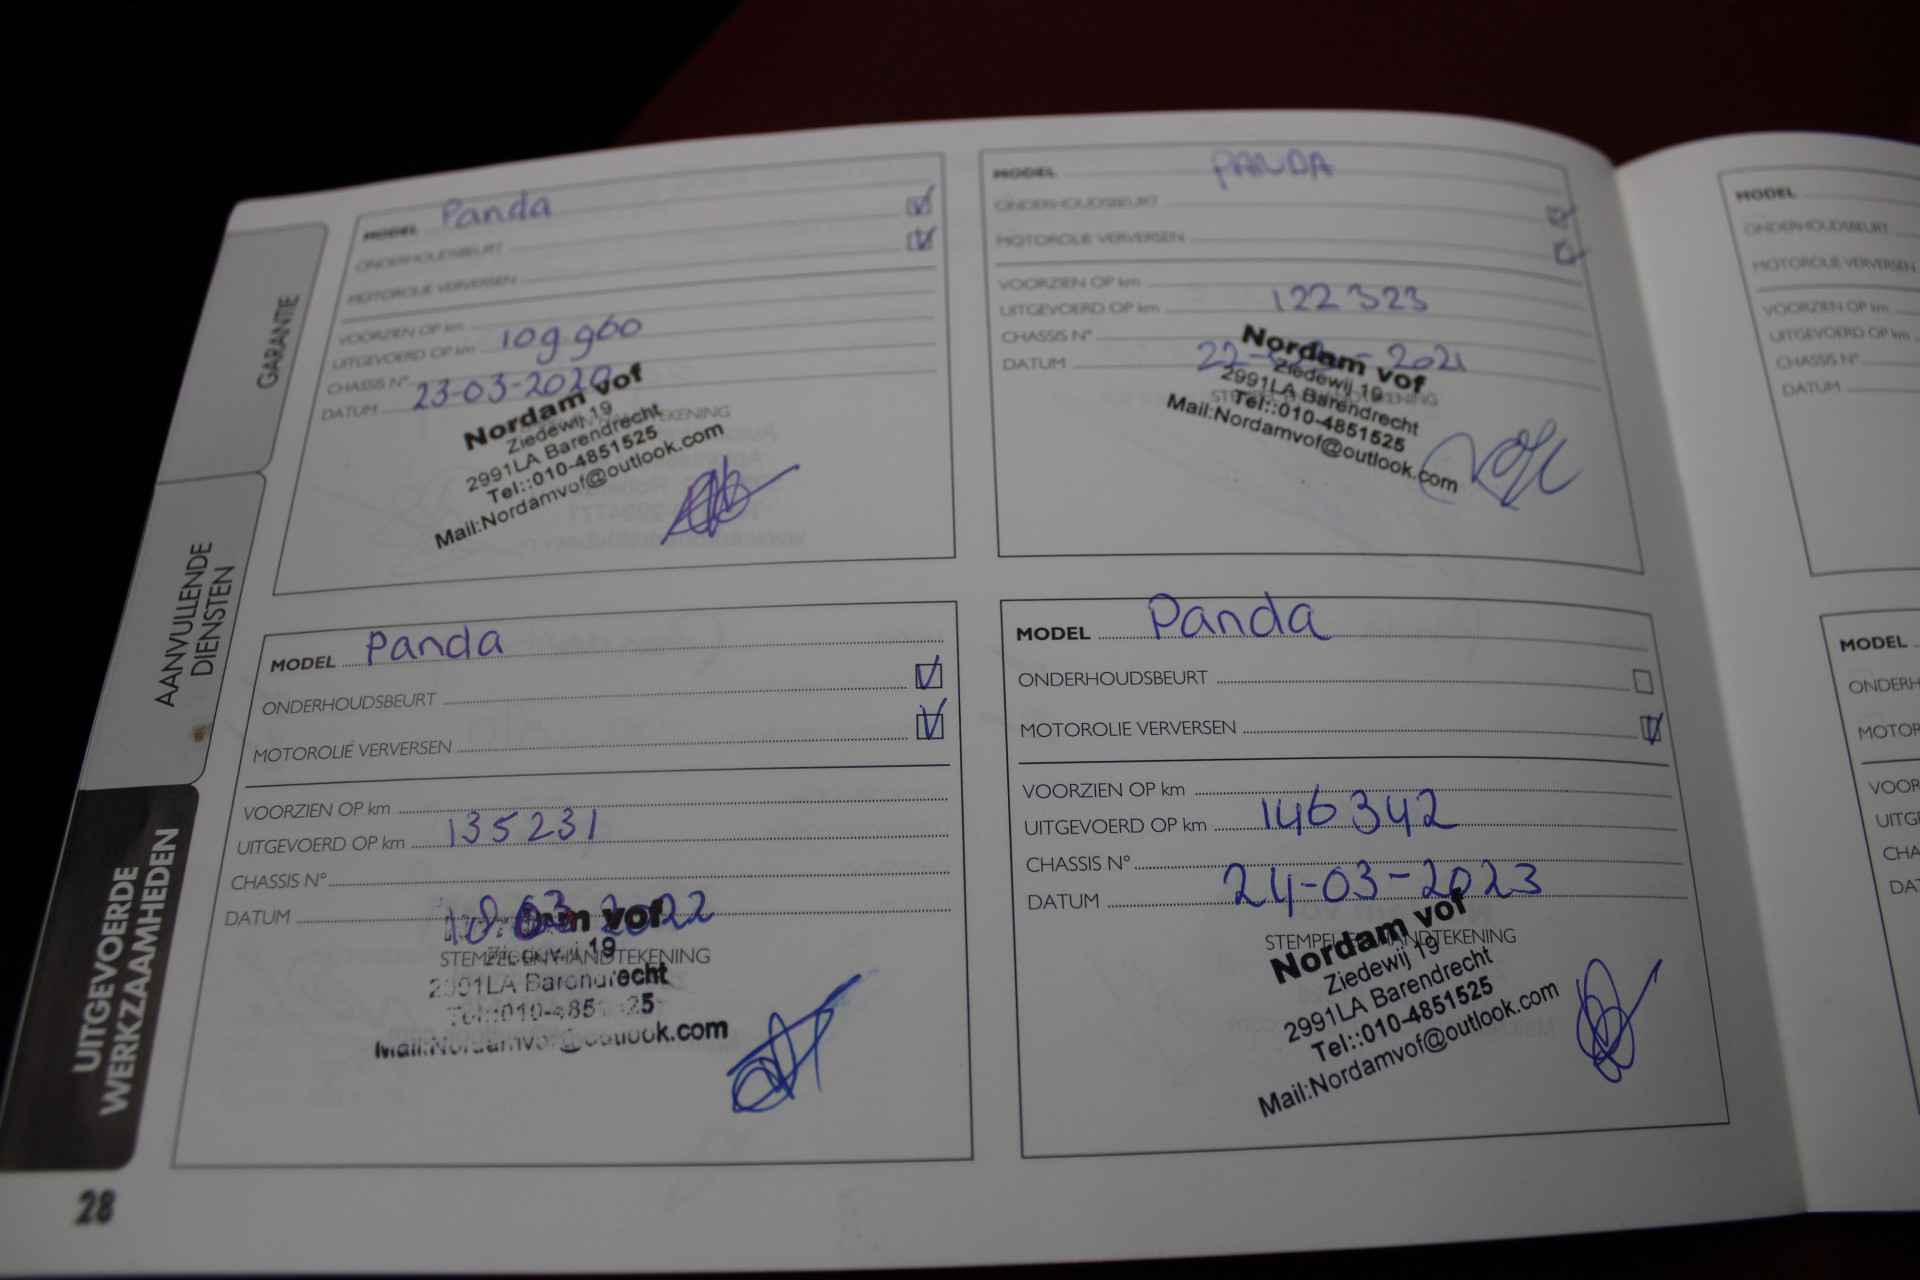 GARANTIE
AANVULLENDE
DIENSTEN
UITGEVOERDE
WERKZAAMHEDEN
MODEL Panda
ONDERHOUDSBEURT
MOTOROLIE VERVERSEN
VOORZIEN OP km
UITGEVOERD OP km 109.960
CHASSIS N°
DATUM 23-03-2020
Nordam vof
Ziedewij 19
2991LA Barendrecht
Tel::010-4851525
Mail:Nordamvof@outlook.com
MODEL PANDA
ONDERHOUDSBEURT
MOTOROLIE VERVERSEN
VOORZIEN OP km
UITGEVOERD OP km 122323
CHASSIS N°
DATUM 22- - 2021
Nordam vof
Ziedewij 19
2991LA Barendrecht
Tel::010-4851525
Mail:Nordamvof@outlook.com
MODEL Panda
ONDERHOUDSBEURT
MOTOROLIE VERVERSEN
VOORZIEN OP km
UITGEVOERD OP km 135231
CHASSIS N°
DATUM 03 2022
vof
STEMPEL EN HANDTEKENING
2991LA Barendrecht
Mail:Nordamvof@outlook.com
MODEL Panda
ONDERHOUDSBEURT
MOTOROLIE VERVERSEN
VOORZIEN OP km
UITGEVOERD OP km 146342
CHASSIS N°
DATUM 24-03-2023
STEMPEL EN HANDTEKENING
Nordam vof
Ziedewij 19
2991LA Barendrecht
Tel::010-4851525
Mail:Nordamvof@outlook.com
MODEL
ONDERHOUDSBEURT
MOTOROLIE VERVERSEN
VOORZIEN OP km
UITGEVOERD OP km
CHASSIS N°
DATUM
MODEL
ONDERH
MOTOR
VOOR
UITG
CHA
DAT
28